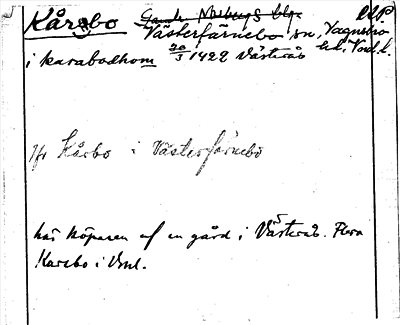 Kårsbo Gamla Norbergs bgs. UUP
Västerfärnebo sn, Vagnsbro
i karabodhom 20/3 1422 Västerås hd, Vsml.
Jfr Kårbo i Västerfärnebo
här köparen af en gård i Västerås. Flera
Karebo i Vsml.